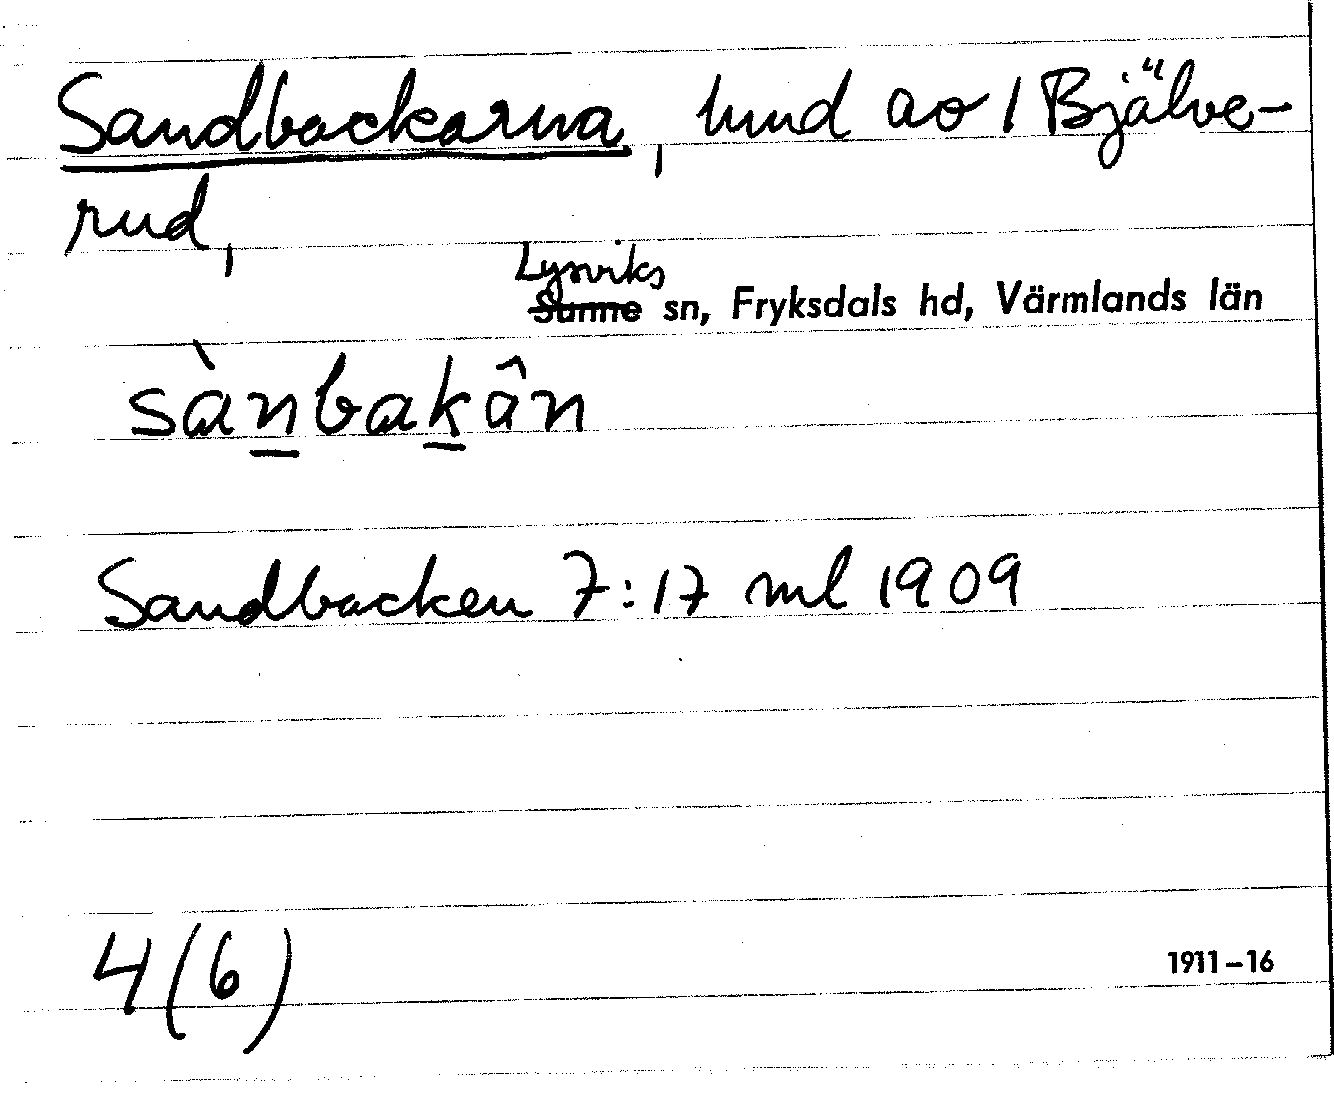 Sandbackarna, hmd av 1 Bjälve-
rud,
Lysviks
Sunne sn, Fryksdals hd, Värmlands län
sànbakân
Sandbacken 7:17 ml 1909
4(6)
1911-16